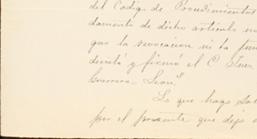 del Código de Procedimientos
damento de dicho artículo no
que la revocacion ni la fun
decretó y firmó el C. Juez
Guerrero. Leon"
Lo que hago sa
por el presente que dejo e